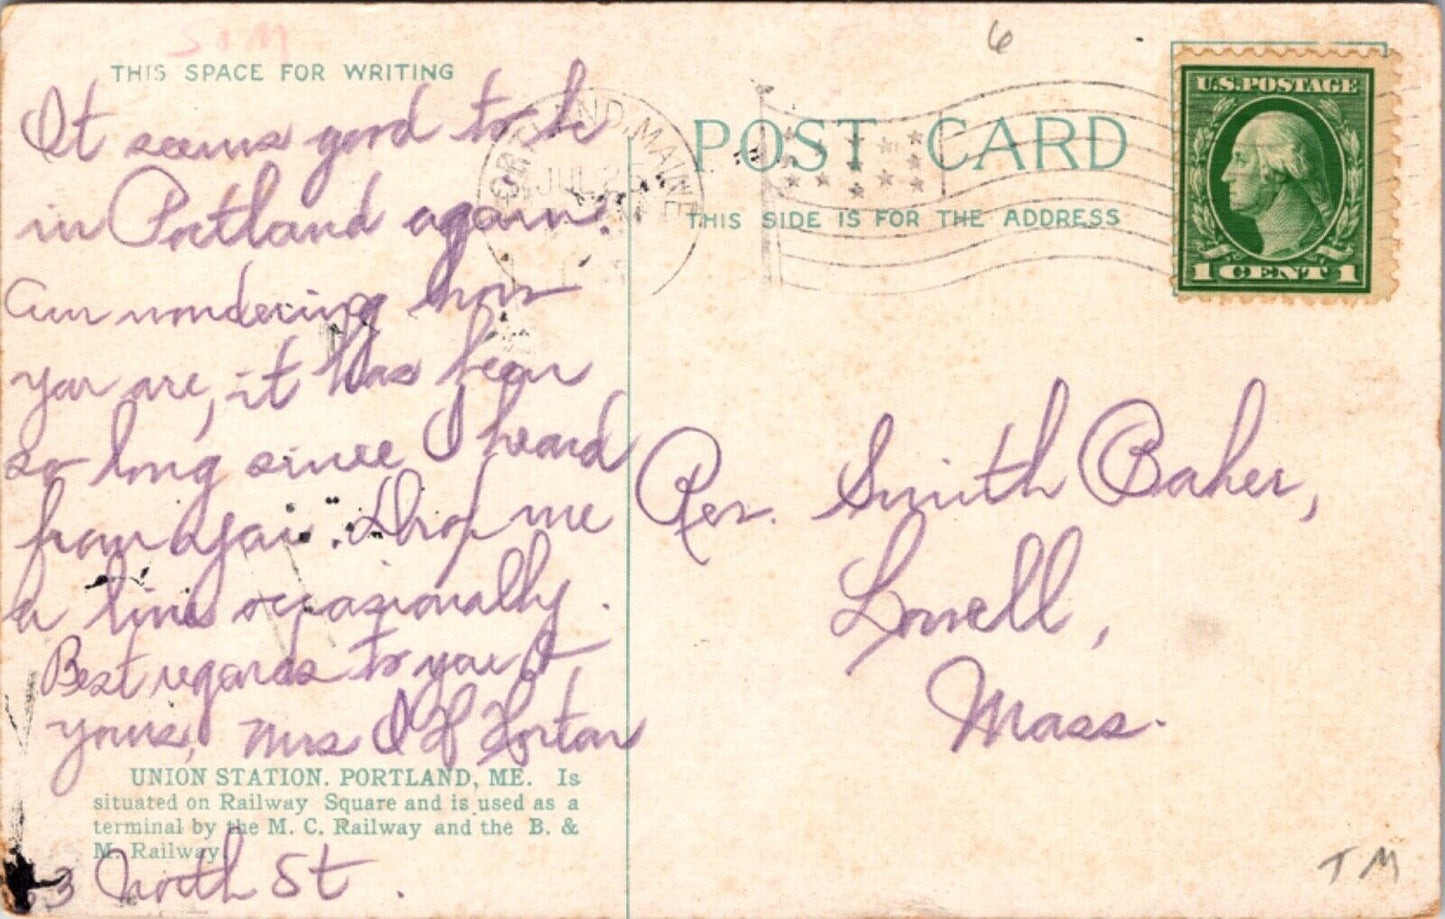 SIM
6
THIS SPACE FOR WRITING
It seems good to be
in Portland again.
Am wondering how
you are, it has been
so long since I heard
from you. Drop me
a line occasionally.
Best regards to you &
yours, Mrs
UNION STATION. PORTLAND, ME. Is
situated on Railway Square and is used as a
terminal by the M. C. Railway and the B. &
M. Railway
North St.
PORTLAND, MAINE
JUL
POST CARD
THIS SIDE IS FOR THE ADDRESS
U.S. POSTAGE
1 CENT 1
Rev. Smith Baker,
Lowell,
Mass.
TM